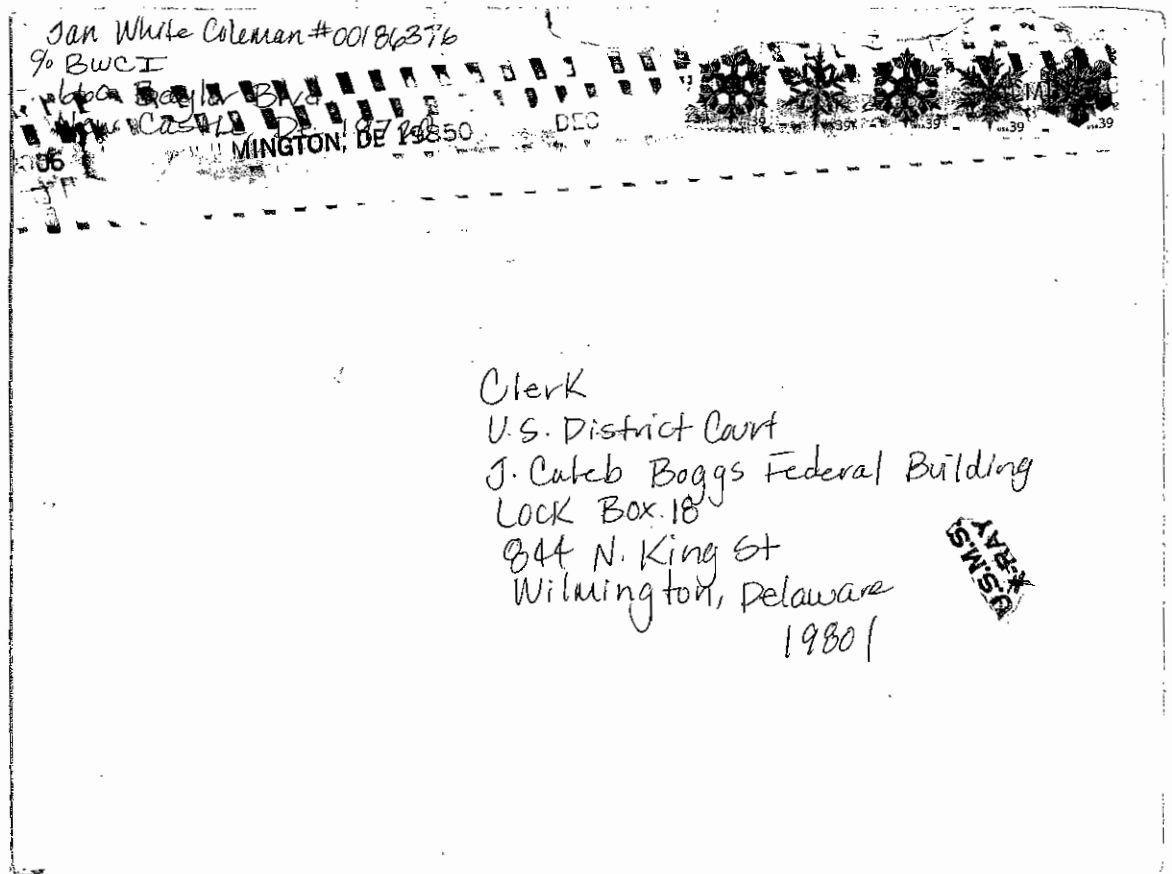 Jan White Coleman #00186376
% BWCI
660 Baylor Blvd
Castle, DE
MINGTON, DE 19850
DEC
06
39
usa39
usa39
usa39
usa39
Clerk
U.S. District Court
J. Caleb Boggs Federal Building
Lock Box 18
844 N. King St
Wilmington, Delaware
19801
U.S.M.S.
X-RAY